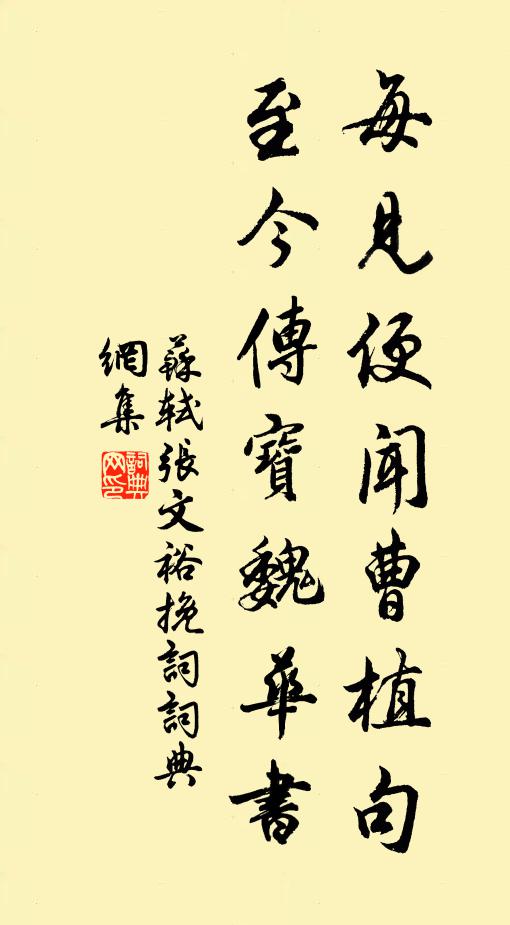 每見便聞曹植句
至今傳寶魏華書
蘇軾張文裕挽詞詞典
網集
詞典网印